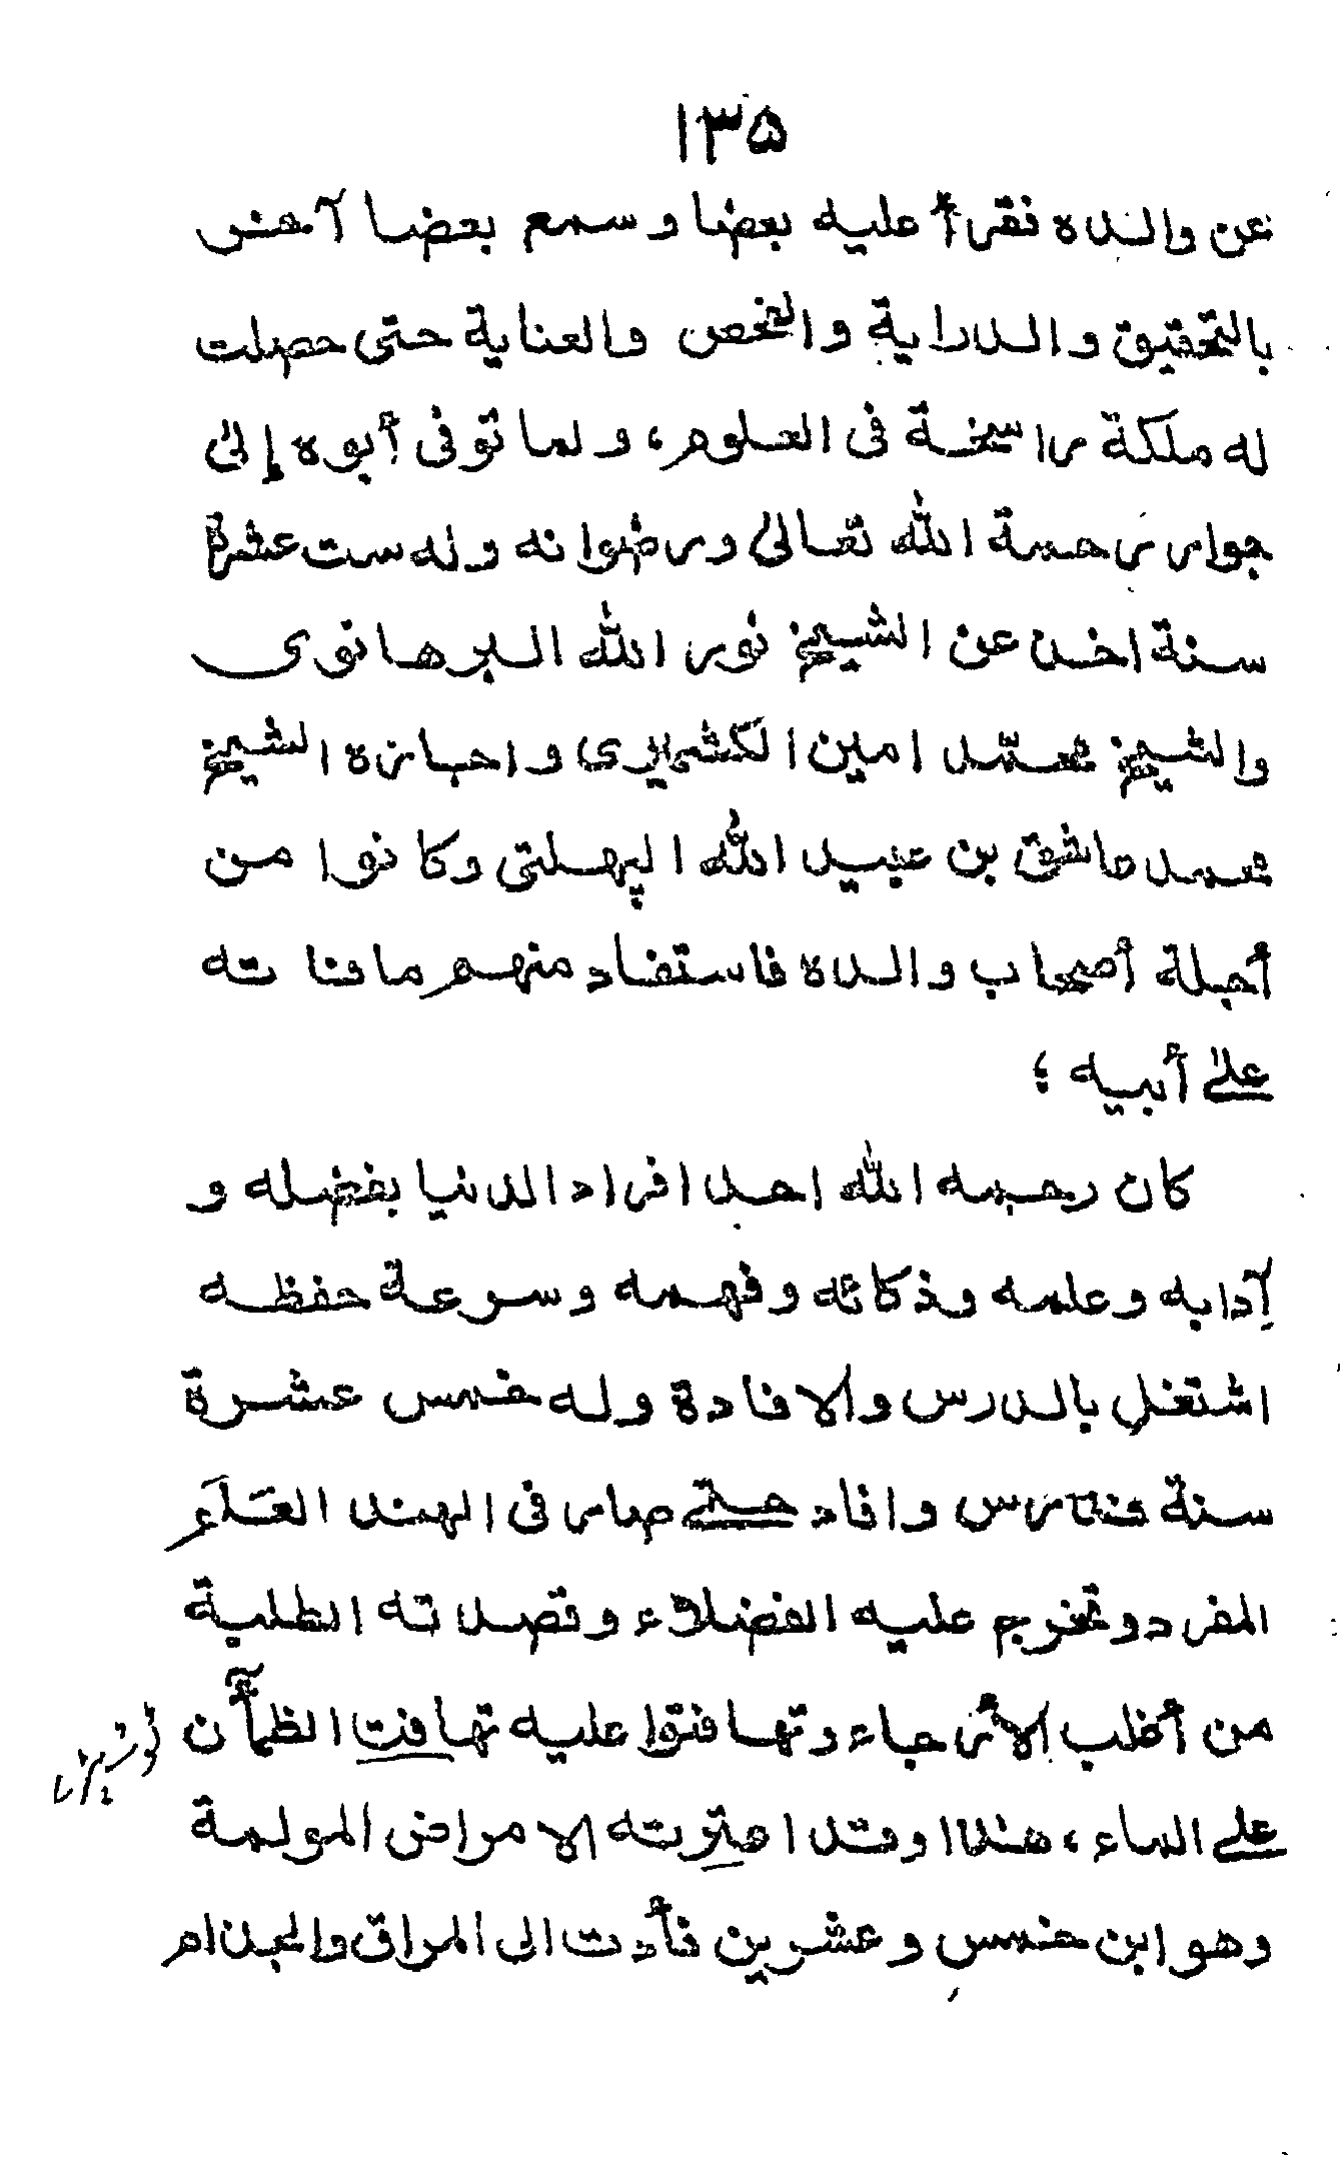 ۱۳۵
عن والده فقرأ عليه بعضا وسمع بعضا آخر
بالتحقيق والدراية والفحص والعناية حتى حصلت
له ملكة راسخة فى العلوم، ولما توفى أبوه إلى
جوار رحمة الله تعالى ورضوانه وله ست عشرة
سنة اخذ عن الشيخ نور الله البرهانوى
والشيخ محمّد امين الكشميرى واجازه الشيخ
محمد عاشق بن عبيد الله الپهلتى وكانوا من
أجلة أصحاب والده فاستفاد منهم ما فاته
على أبيه ؛
كان رحمه الله احد افراد الدنيا بفضله و
آدابه وعلمه وذكائه وفهمه وسرعة حفظه
اشتغل بالدرس والافادة وله خمس عشرة
سنة فدرس وافاد حتى صار فى الهند العَلَم
المفرد وتخرج عليه الفضلاء وقصدته الطلبة
من أغلب الأرجاء وتهافتوا عليه تهافت الظمآن
على الماء، هذا وقد اعترته الامراض المولمة
وهو ابن خمس وعشرين فأدت الى المراق والجذام